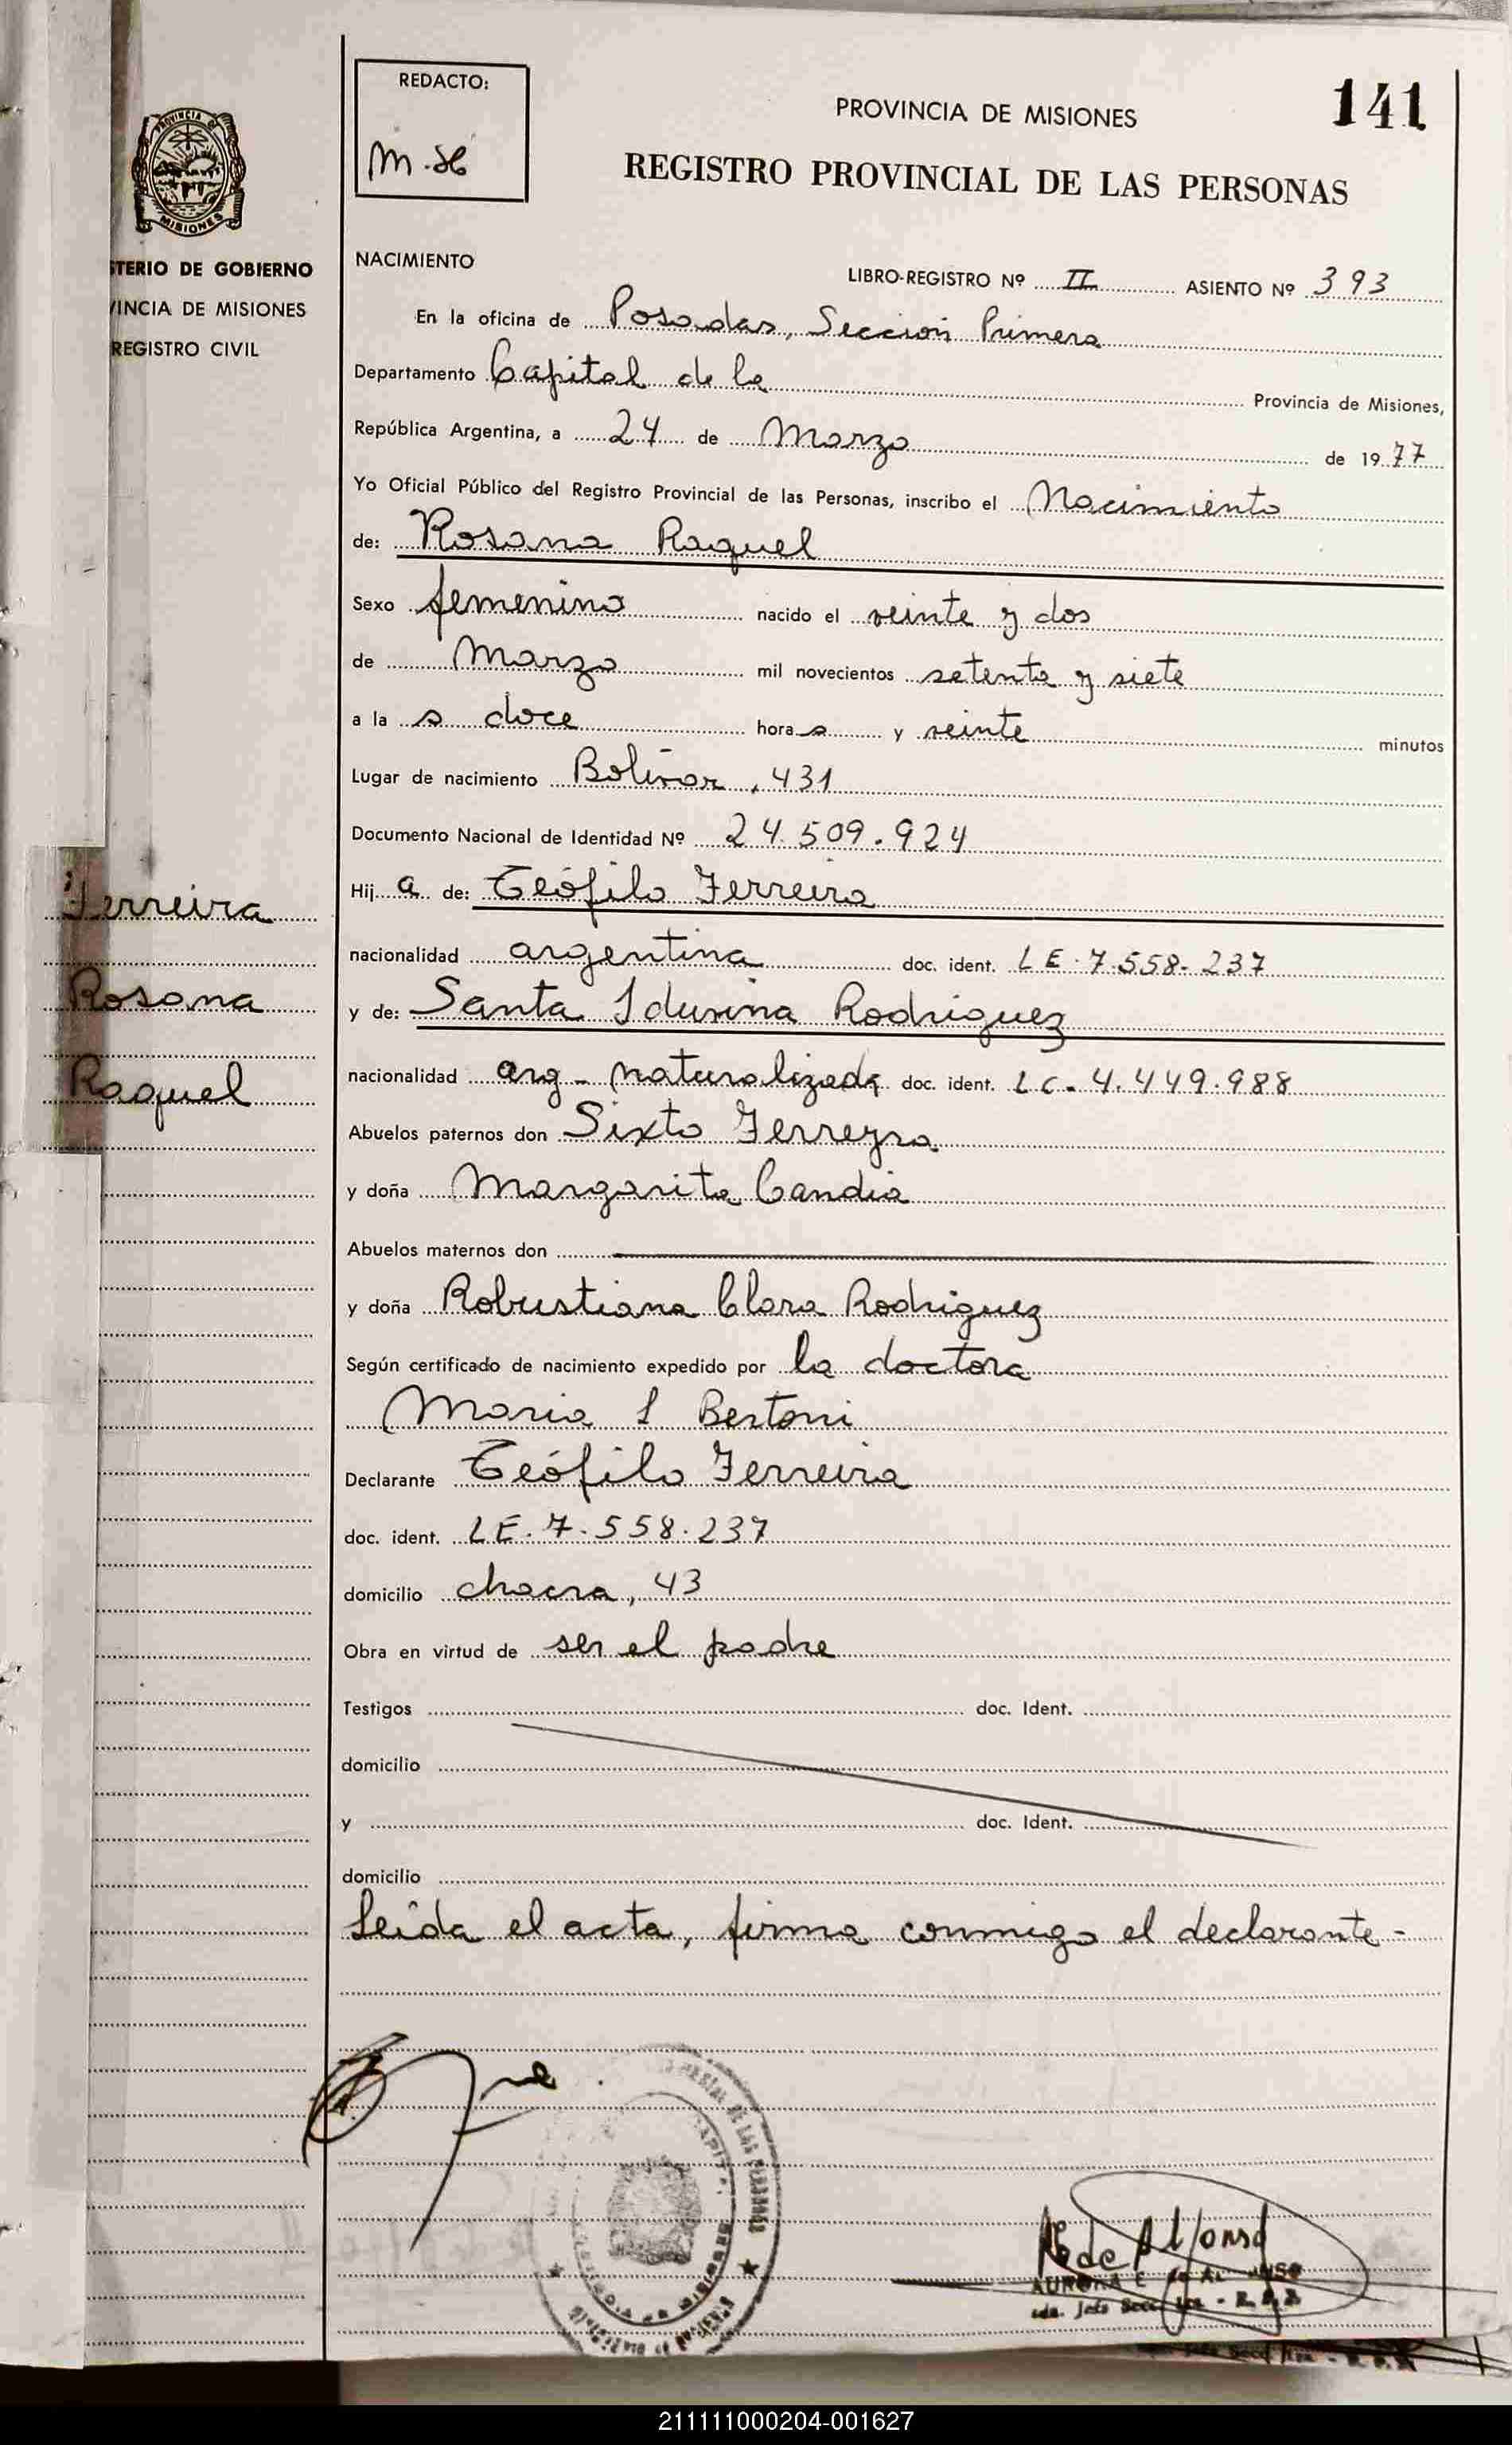 REDACTO:
M.H
PROVINCIA DE MISIONES
141
REGISTRO PROVINCIAL DE LAS PERSONAS
PROVINCIA DE
MISIONES
STERIO DE GOBIERNO
VINCIA DE MISIONES
REGISTRO CIVIL
NACIMIENTO
LIBRO-REGISTRO Nº II ASIENTO Nº 393
En la oficina de Posadas, Sección Primera
Departamento Capital de la Provincia de Misiones,
República Argentina, a 24 de Marzo de 1977
Yo Oficial Público del Registro Provincial de las Personas, inscribo el Nacimiento
de: Rosana Raquel
Sexo femenino nacido el veinte y dos
de Marzo mil novecientos setenta y siete
a la s doce hora s y veinte minutos
Lugar de nacimiento Bolívar, 431
Documento Nacional de Identidad Nº 24.509.924
Hij a de: Teófilo Ferreira
nacionalidad argentina doc. ident. LE.7.558.237
y de: Santa Iduvina Rodriguez
nacionalidad arg- naturalizada doc. ident. LC-4.449.988
Abuelos paternos don Sixto Ferreyra
y doña Margarita Candia
Abuelos maternos don
y doña Robustiana Clara Rodriguez
Según certificado de nacimiento expedido por la doctora
Maria I Bertoni
Declarante Teófilo Ferreira
doc. ident. LE.7.558.237
domicilio chacra, 43
Obra en virtud de ser el padre
Testigos doc. Ident.
domicilio
y doc. Ident.
domicilio
Leída el acta, firma conmigo el declarante-
Ferreira
Rosana
Raquel
de Alfonso
AURORA E. de ALFONSO
211111000204-001627